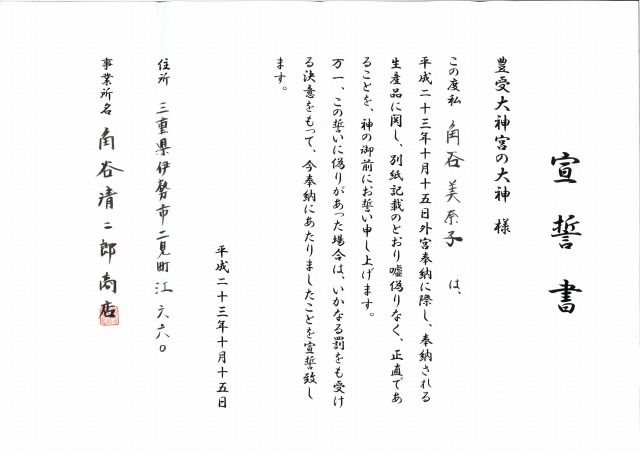 宣誓書
豊受大神宮の大神 様
この度私 角谷美奈子 は、
平成二十三年十月十五日外宮奉納に際し、奉納される
生産品に関し、別紙記載のとおり嘘偽りなく、正直であ
ることを、神の御前にお誓い申し上げます。
万一、この誓いに偽りがあった場合は、いかなる罰をも受け
る決意をもって、今奉納にあたりましたことを宣誓致し
ます。
平成二十三年十月十五日
住所 三重県伊勢市二見町江六六〇
事業所名 角谷清二郎商店